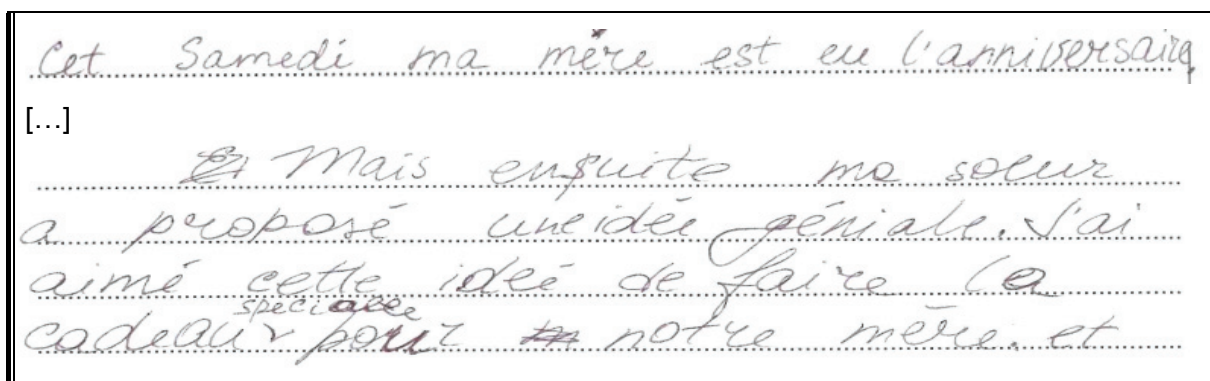 Cet Samedi ma mère est eu l'anniversaire,
[...]
Mais ensuite ma soeur
a proposé une idée géniale. J'ai
aimé cette ideé de faire le
speciale
cadeau pour notre mère. et